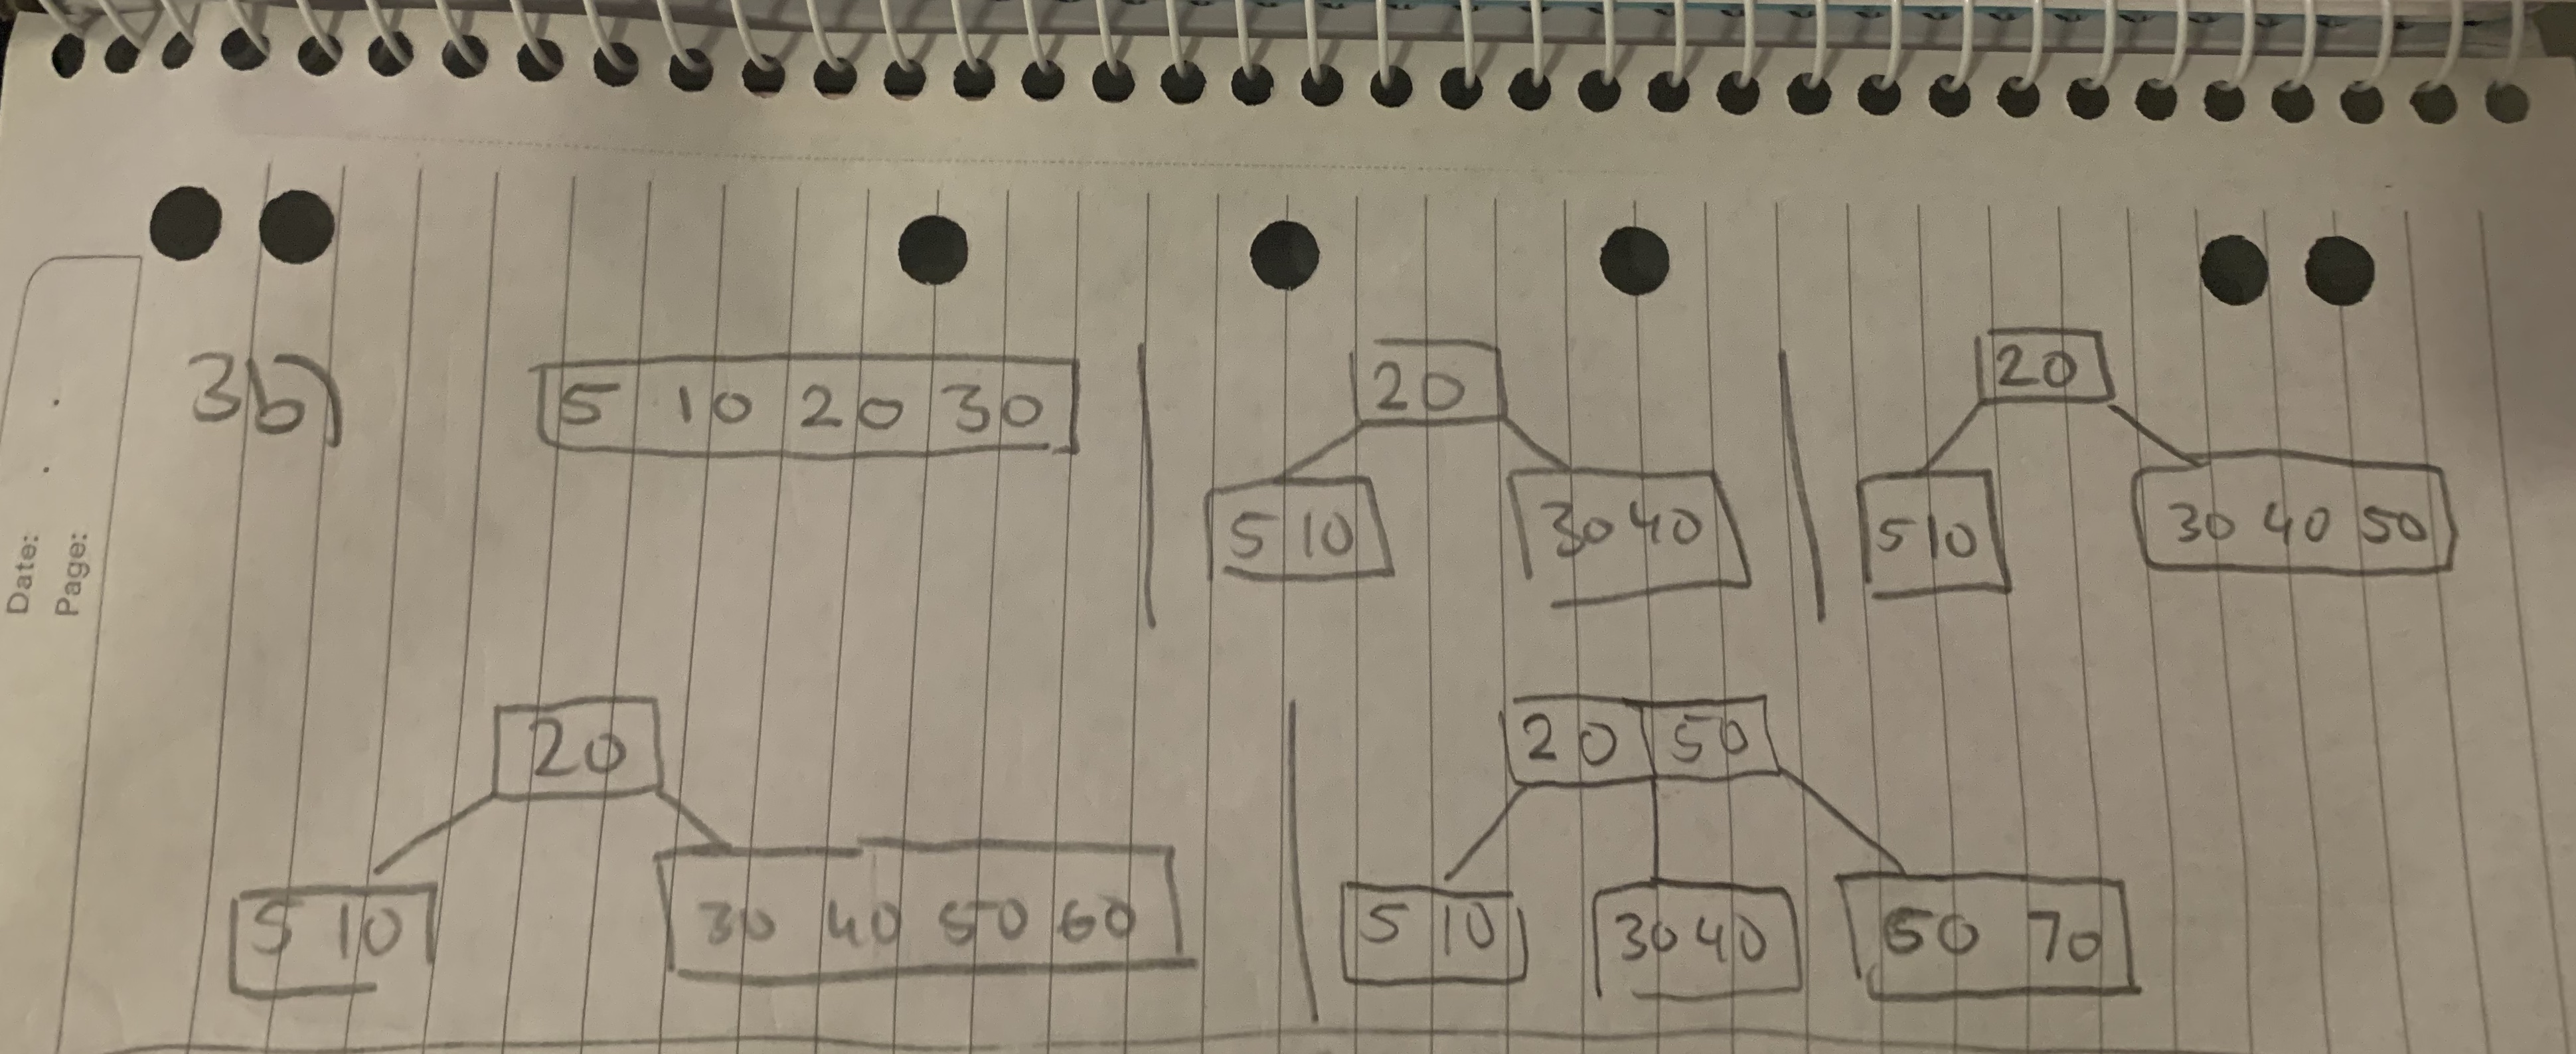 Date:
Page:
3b) 5 10 20 30
20
5 10 30 40
20
5 10 30 40 50
20
5 10 30 40 50 60
20 50
5 10 30 40 60 70